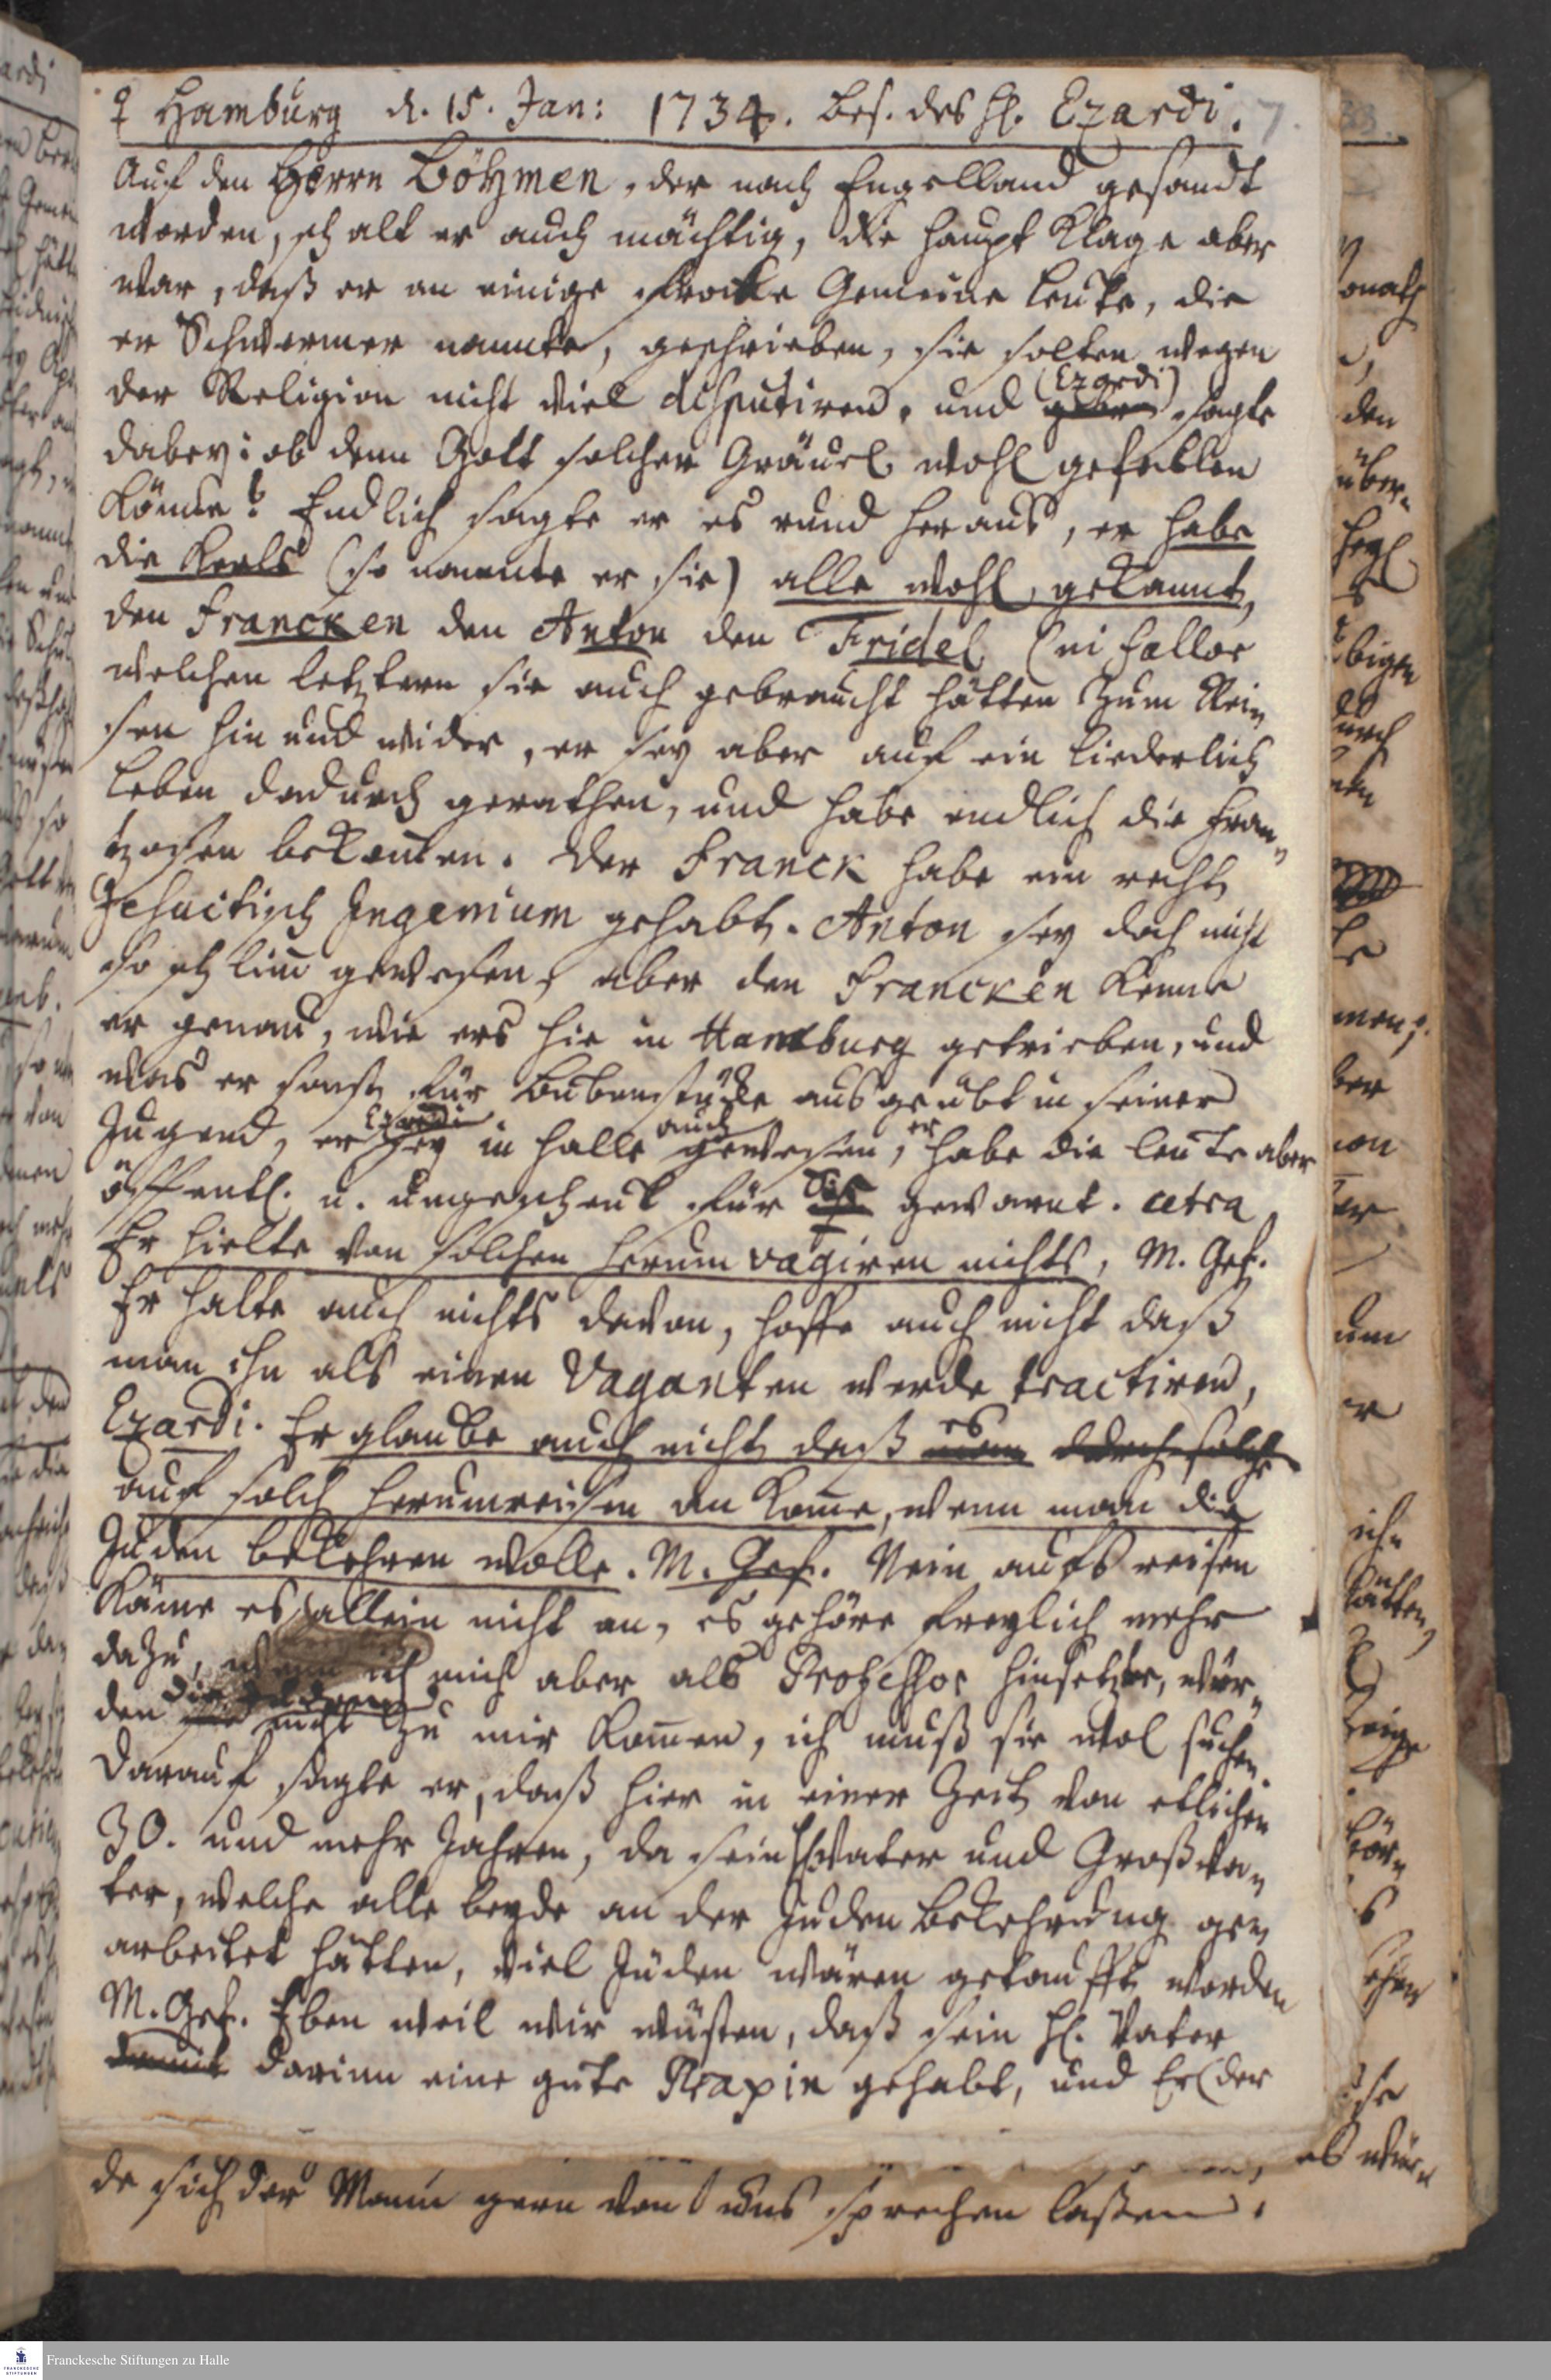 ♀ Hamburg d. 15. Jan: 1734. bes. des H. Ezardi. 7.
Auf den Herrn Böhmen, der nach Engelland gesandt
worden, schalt er auch mächtig, die Haupt Klage aber
war, daß er an einige Gemeine Leute, die
er Schwermer nannte, geschrieben, sie solten wegen
der Religion nicht viel disputiren, und (Ezardi) sagte
dabey: ob denn Gott solcher Gräuel wohl gefallen
könne? Endlich sagte er es rund heraus, er habe
die Kerls (so nannte er sie) alle wohl gekannt,
den Francken den Anton den Fridel (ni fallor
welchen letztern sie auch gebraucht hätten zum Rei„
sen hin und wider, er sey aber auf ein liederlich
Leben dadurch gerathen, und habe endlich die Fran„
tzosen bekommen. Der Franck habe ein recht
Jesuitisch Ingenium gehabt. Anton sey doch nicht
so schlim gewesen, aber den Francken kenne
er genau, wie ers hie in Hamburg getrieben, und
was er sonst für Bubenstücke ausgeübt in seiner
Jugend, er Ezardi sey in Halle auch gewesen, er habe die Leute aber
öffentl. u. ungescheut für gewarnt. cetra
Er hielte von solchen herum vagiren nichts, M. Gef.
Er halte auch nichts davon, hoffe auch nicht daß
man ihn als einen Vaganten werde tractiren,
Ezardi. Er glaube auch nicht daß es man durch solche
auf solch herumreisen an komme, wenn man die
Juden bekehren wolle. M. Gef. Nein aufs reisen
käme es allein nicht an, es gehöre freylich mehr
dazu, wenn ich mich aber als Professor hinsetzte, wür„
den die Juden nicht zu mir kommen, ich muß sie wol suchen.
Darauf sagte er, daß hier in einer Zeit von etlichen
30. und mehr Jahren, da sein Vater und Großva„
ter, welche alle beyde an der Juden Bekehrung ge„
arbeitet hätten, viel Juden wären getaufft worden
M. Gef. Eben weil wir wüsten, daß sein H. Vater
damit darinn eine gute Praxin gehabt, und Er (der
de sich der Mann gern von uns sprechen laßen.
es wür„
Franckesche Stiftungen zu Halle